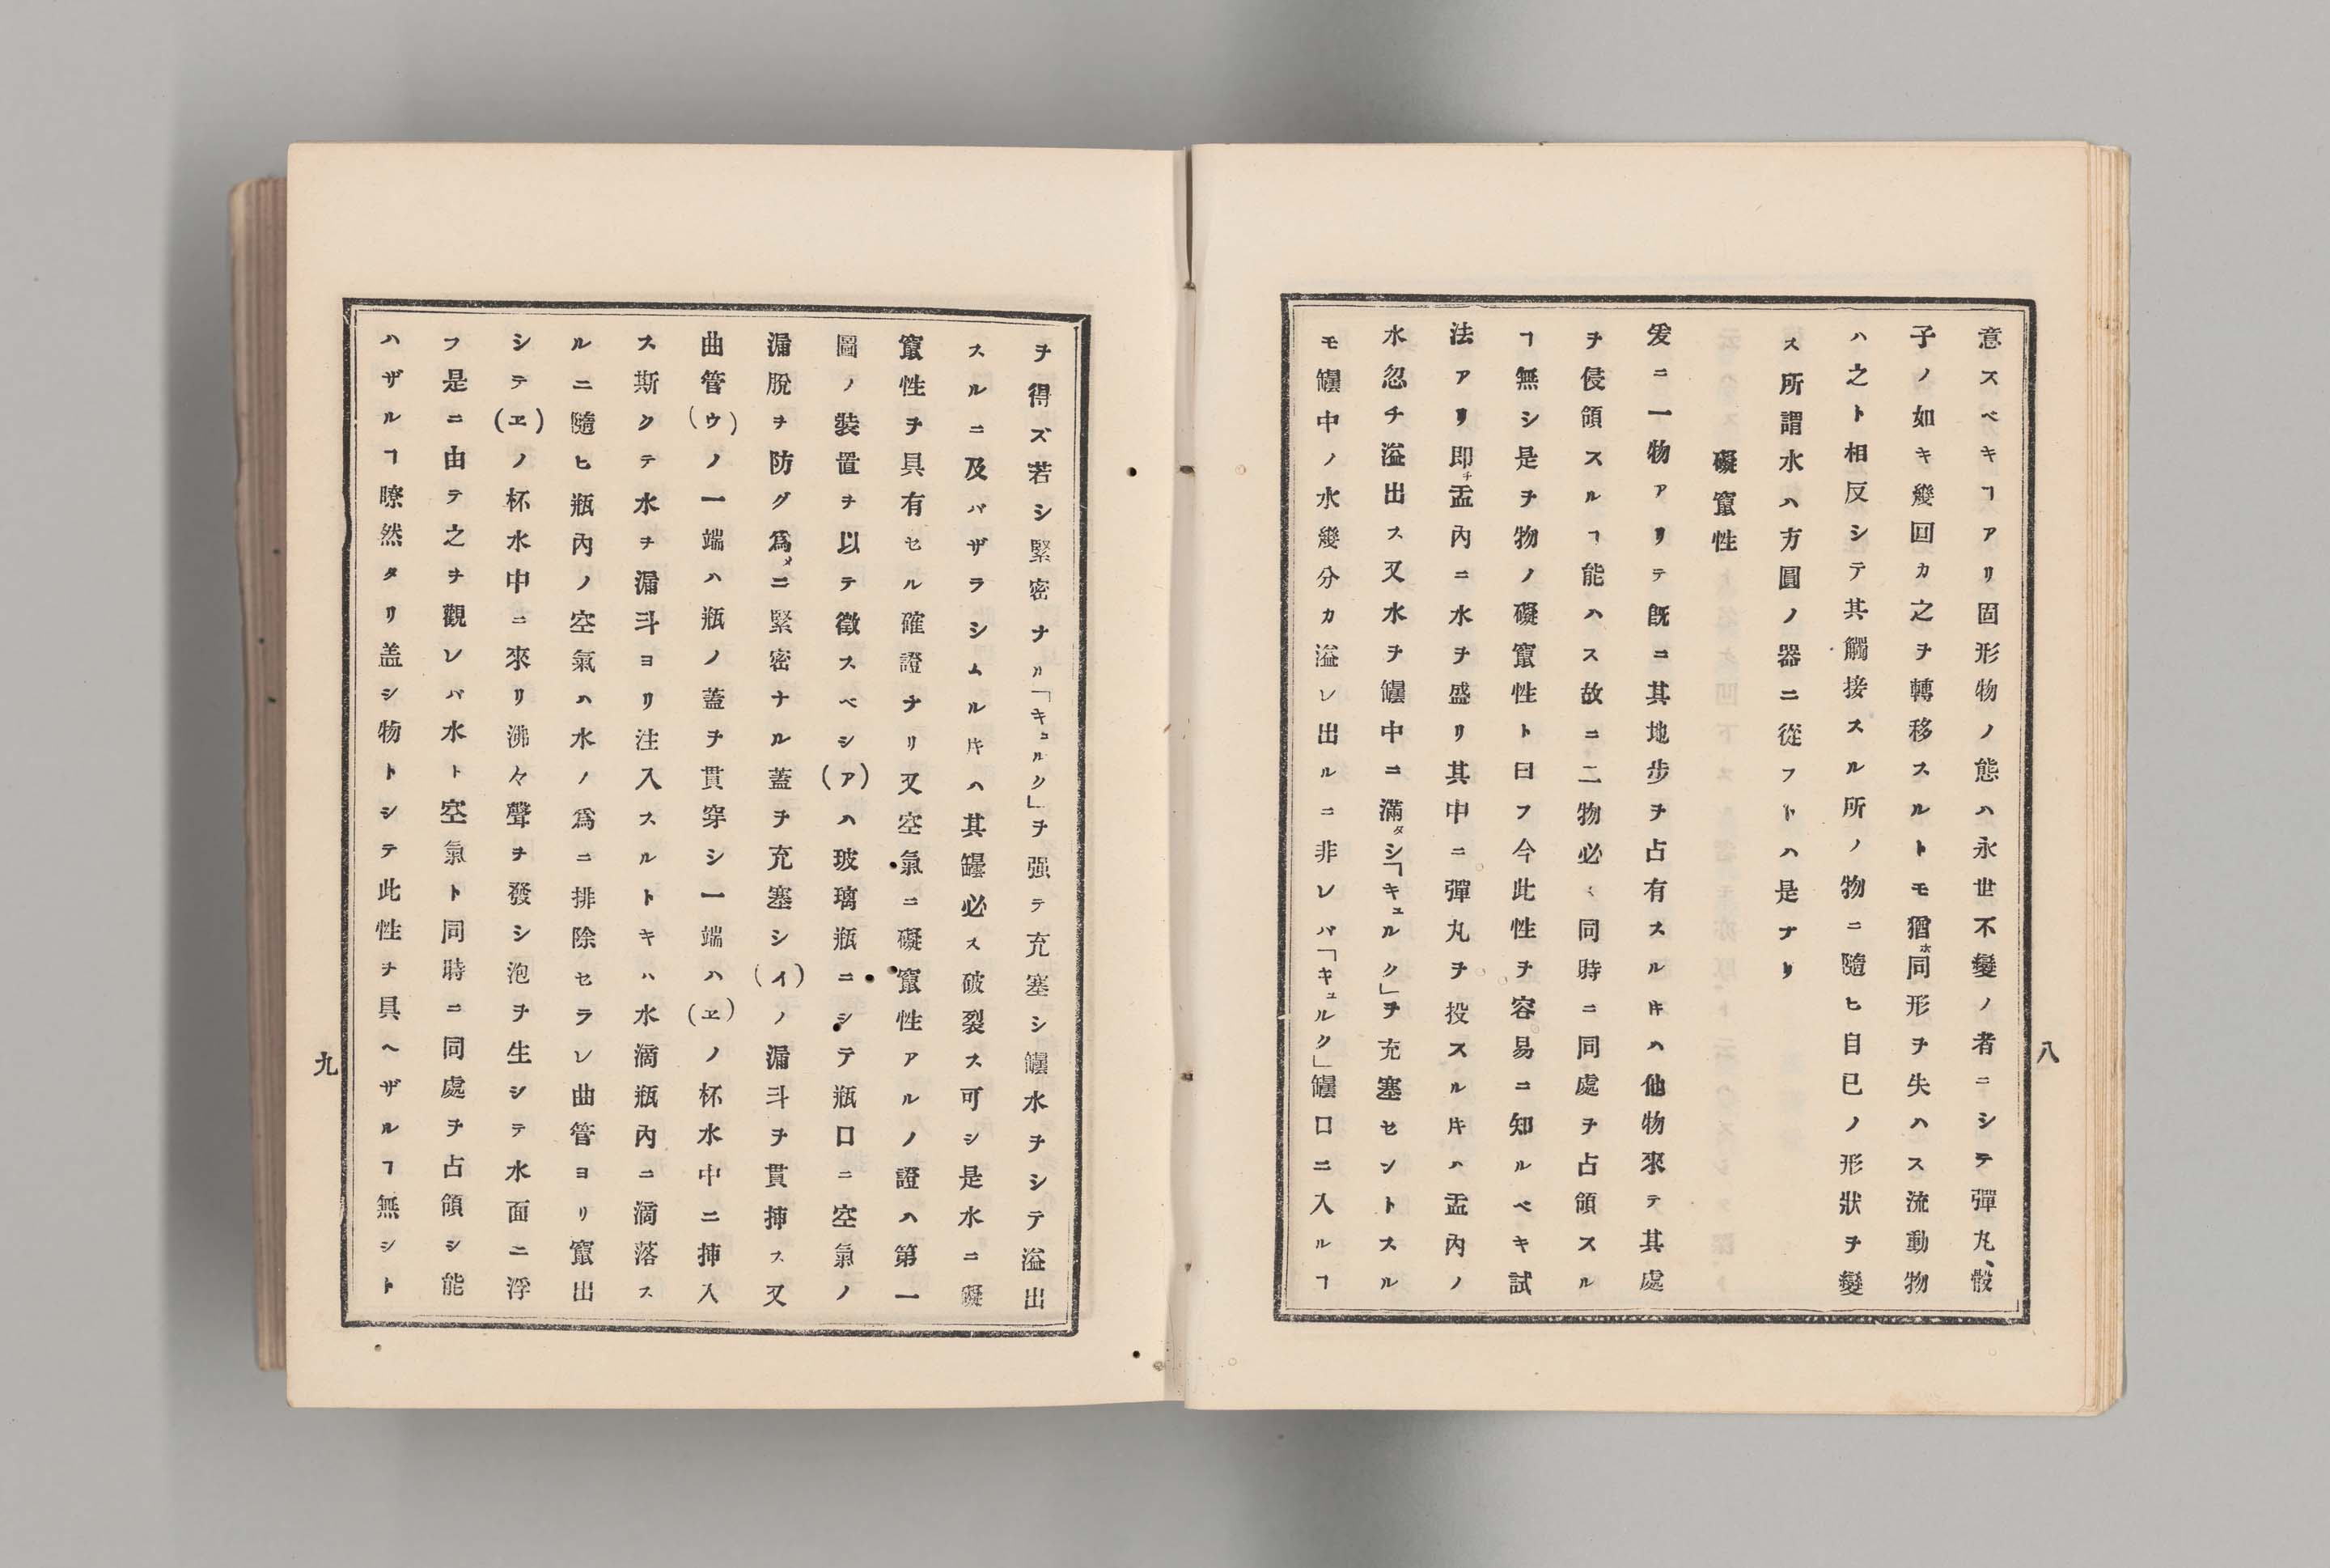 意スベキヿアリ固形物ノ態ハ永世不變ノ者ニシテ彈丸、骰
子ノ如キ幾回カ之ヲ轉移スルトモ猶ホ同形ヲ失ハス流動物
ハ之ト相反シテ其觸接スル所ノ物ニ隨ヒ自已ノ形狀ヲ變
ス所謂水ハ方圓ノ器ニ從フトハ是ナリ
礙竄性
爰ニ一物アリテ旣ニ其地步ヲ占有スルキハ他物來テ其處
ヲ侵領スルヿ能ハス故ニ二物必〻同時ニ同處ヲ占領スル
ヿ無シ是ヲ物ノ礙竄性ト曰フ今此性ヲ容易ニ知ルベキ試
法アリ即チ盂內ニ水ヲ盛リ其中ニ彈丸ヲ投スルキハ盂內ノ
水忽チ溢出ス又水ヲ罎中ニ滿タシ「キュルク」ヲ充塞セントスル
モ罎中ノ水幾分カ溢レ出ルニ非レバ「キュルク」罎口ニ入ルヿ
八
ヲ得ズ若シ緊密ナル「キュルク」ヲ强テ充塞シ罎水ヲシテ溢出
スルニ及バザラシムルキハ其罎必ス破裂ス可シ是水ニ礙
竄性ヲ具有セル確證ナリ又空氣ニ礙竄性アルノ證ハ第一
圖ノ裝置ヲ以テ徵スベシ(ア)ハ玻璃瓶ニシテ瓶口ニ空氣ノ
漏脫ヲ防グ爲メニ緊密ナル蓋ヲ充塞シ(イ)ノ漏斗ヲ貫揷ス又
曲管(ウ)ノ一端ハ瓶ノ蓋ヲ貫穿シ一端ハ(ヱ)ノ杯水中ニ揷入
ス斯クテ水ヲ漏斗ヨリ注入スルトキハ水滴瓶內ニ滴落ス
ルニ隨ヒ瓶內ノ空氣ハ水ノ爲ニ排除セラレ曲管ヨリ竄出
シテ(ヱ)ノ杯水中ニ來リ沸々聲ヲ發シ泡ヲ生シテ水面ニ浮
フ是ニ由テ之ヲ觀レバ水ト空氣ト同時ニ同處ヲ占領シ能
ハザルヿ瞭然タリ盖シ物トシテ此性ヲ具ヘザルヿ無シト
九